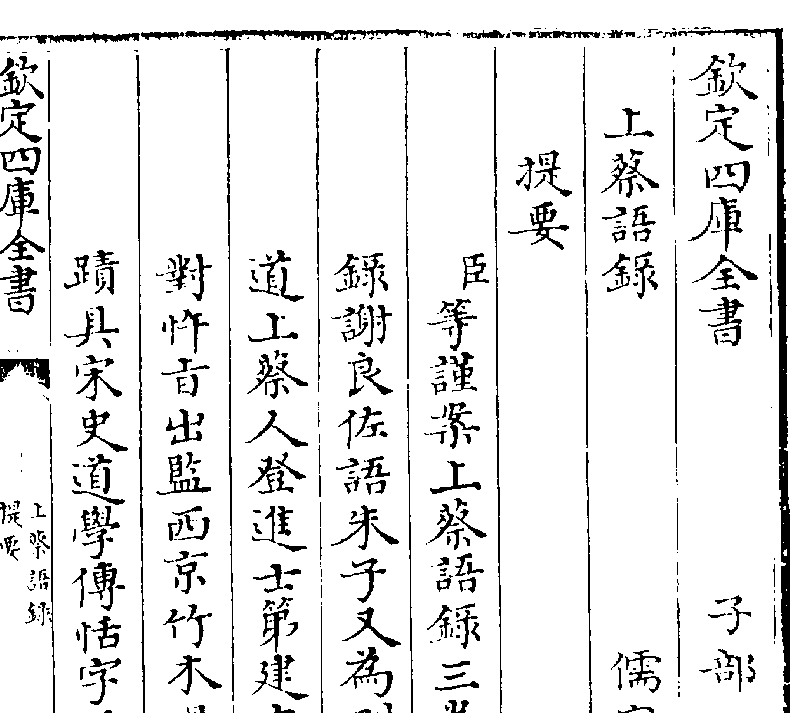 欽定四庫全書 子部
上蔡語錄 儒
提要
臣等謹案上蔡語錄三
錄謝良佐語朱子又為
道上蔡人登進士第建
對忤旨出監西京竹木
蹟具宋史道學傳恬字
欽定四庫全書
上蔡語錄
提要